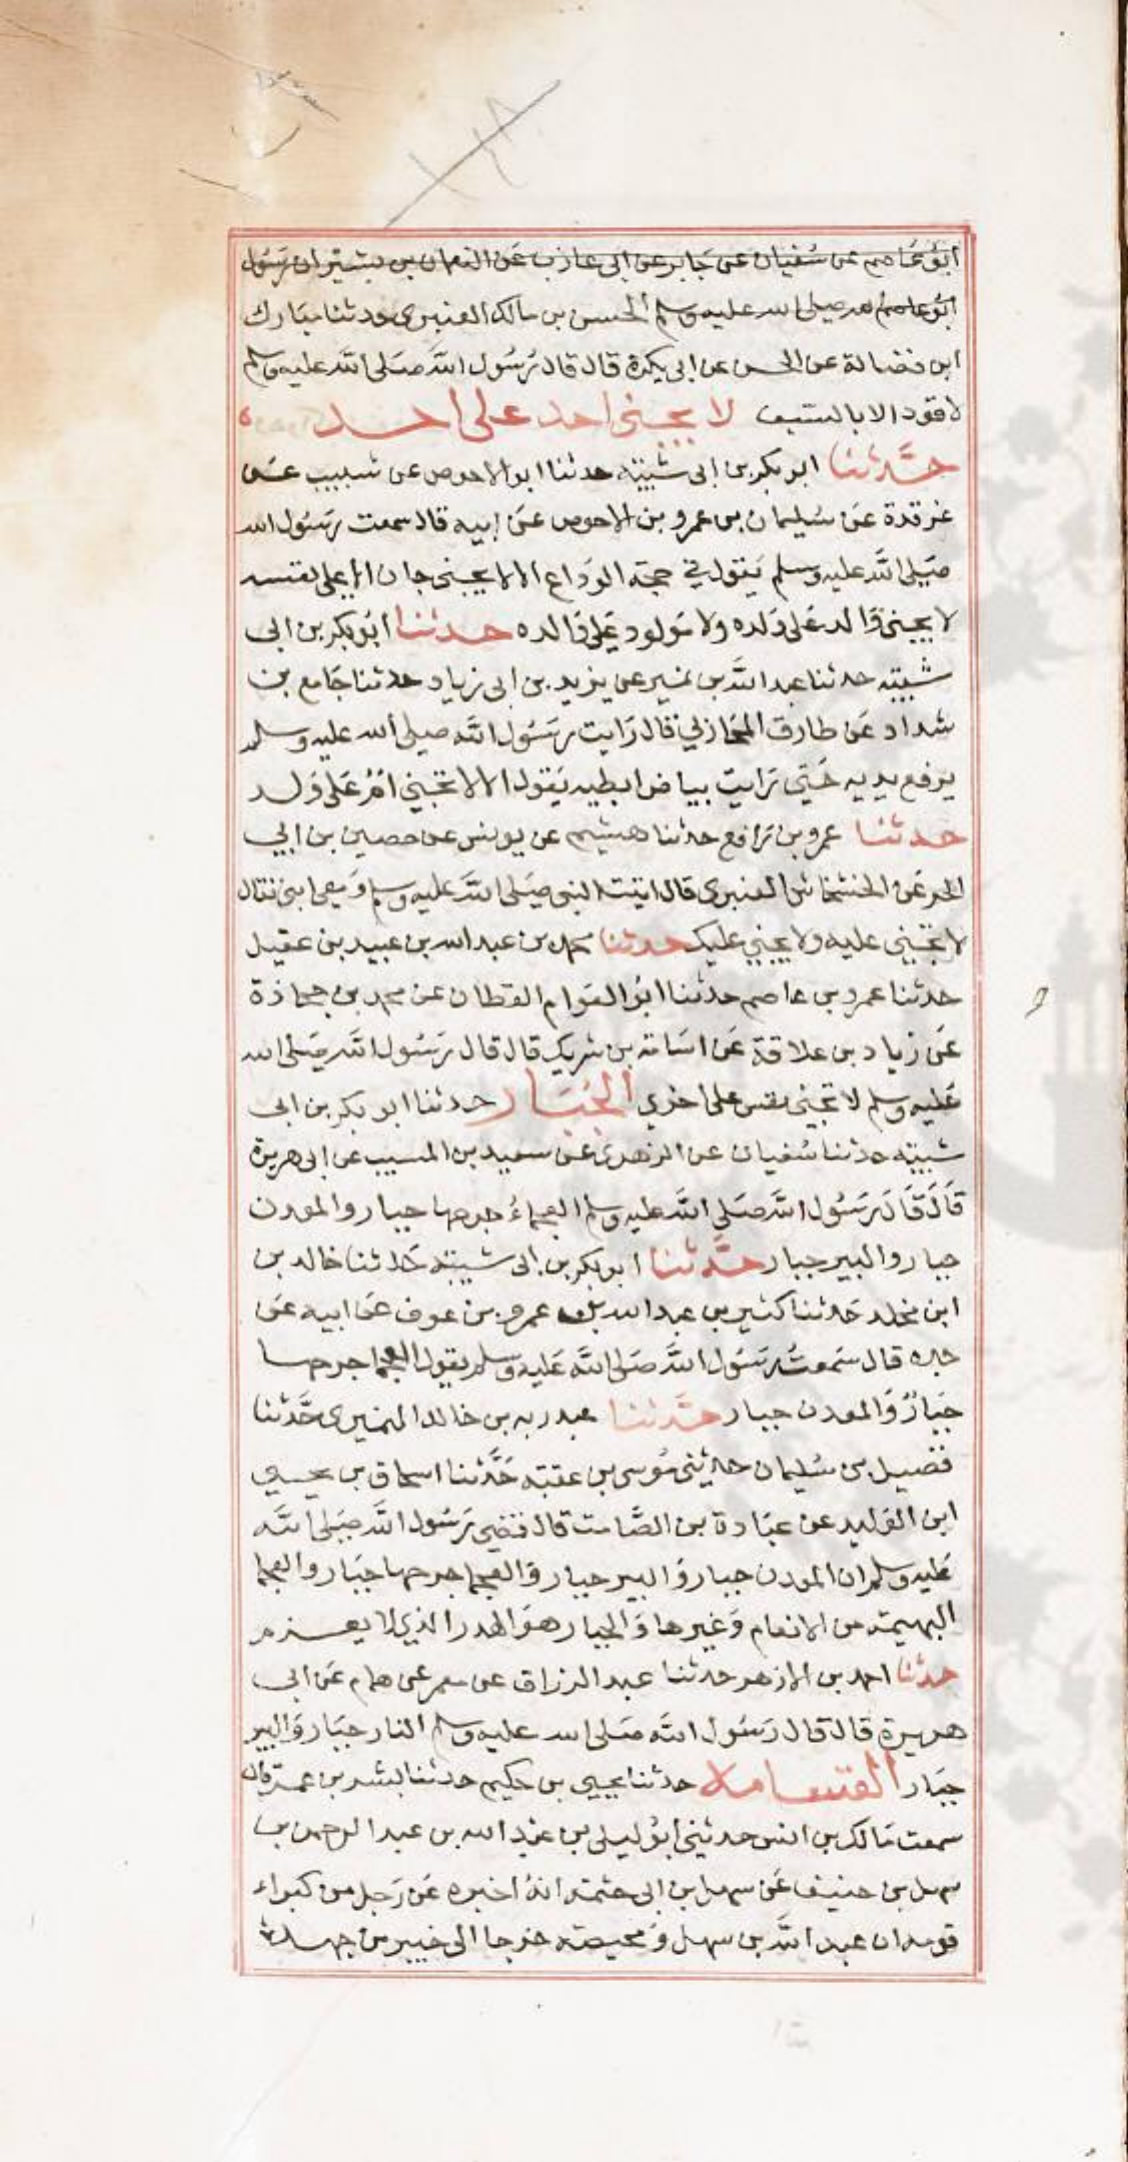 ابو عاصم عن سفيان عن جابر عن ابى عازب عن النعمان بن بشير ان رسول
صلى الله عليه وسلم الحسن بن مالك العنبرى ودثنا مبارك
ابن فضالة عن الحسن عن ابى بكرة قال قال رسول الله صلى الله عليه وسلم
لا قود الا بالسيف لا يجنى احد على احد
حدثنا ابو بكر بن ابى شيبة حدثنا ابو الاحوص عن شبيب عن
غرقدة عن سليمان بن عمرو بن الاحوص عن ابيه قال سمعت رسول الله
صلى الله عليه وسلم يقول في حجة الوداع الا لا يجنى جان الا على نفسه
لا يجنى والد على ولده ولا مولود على والده حدثنا ابو بكر بن ابى
شيبة حدثنا عبد الله بن نمير عن يزيد بن ابى زياد حدثنا جامع بن
شداد عن طارق المحازلي قال رايت رسول الله صلى الله عليه وسلم
يرفع يديه حتى رايت بياض ابطيه يقول الا لا تجني ام على ولد
حدثنا عمرو بن رافع حدثنا هشيم عن يونس عن حصين بن ابي
الحر عن الخشخاش العنبرى قال اتيت النبى صلى الله عليه وسلم ومعى ابنى فقال
لا تجني عليه ولا يجني عليك حدثنا محمد بن عبد الله بن عبيد بن عقيل
حدثنا عمرو بن عاصم حدثنا ابو العوام القطان عن محمد بن جحاذة
عن زياد بن علاقة عن اسامة بن شريك قال قال رسول الله صلى الله
عليه وسلم لا تجنى نفس على اخري الجبار حدثنا ابو بكر بن ابى
شيبة حدثنا سفيان عن الزهرى عن سعيد بن المسيب عن ابى هريرة
قال قال رسول الله صلى الله عليه وسلم العجماء جرحها جبار والمعدن
جبار والبير جبار حدثنا ابو بكر بن ابى شيبة حدثنا خالد بن
ابن مخلد حدثنا كثير بن عبد الله بن عمرو بن عوف عن ابيه عن
جده قال سمعت رسول الله صلى الله عليه وسلم يقول العجما جرحها
جبار والمعدن جبار حدثنا عبد ربه بن خالد النميرى حدثنا
فضيل بن سليمان حدثنى موسى بن عقبة حدثنا اسحاق بن يحيى
ابن الوليد عن عبادة بن الصامت قال قضي رسول الله صلى الله
عليه وسلم ان المعدن جبار والبير جبار والعجما جرحها جبار والعجما
البهيمة من الانعام وغيرها والجبار هو الهدر الذي لا يغرم
حدثنا احمد بن الازهر حدثنا عبد الرزاق عن معمر عن همام عن ابى
هريرة قال قال رسول الله صلى الله عليه وسلم النار جبار والبير
جبار القسامة حدثنا يحيى بن حكيم حدثنا بشر بن عمر قال
سمعت مالك بن انس حدثني ابو ليلى بن عبد الله بن عبد الرحمن بن
سهل بن حنيف عن سهل بن ابى حثمة انه اخبره عن رجل من كبراء
قومه ان عبد الله بن سهل ومحيصة خرجا الى خيبر من جهد